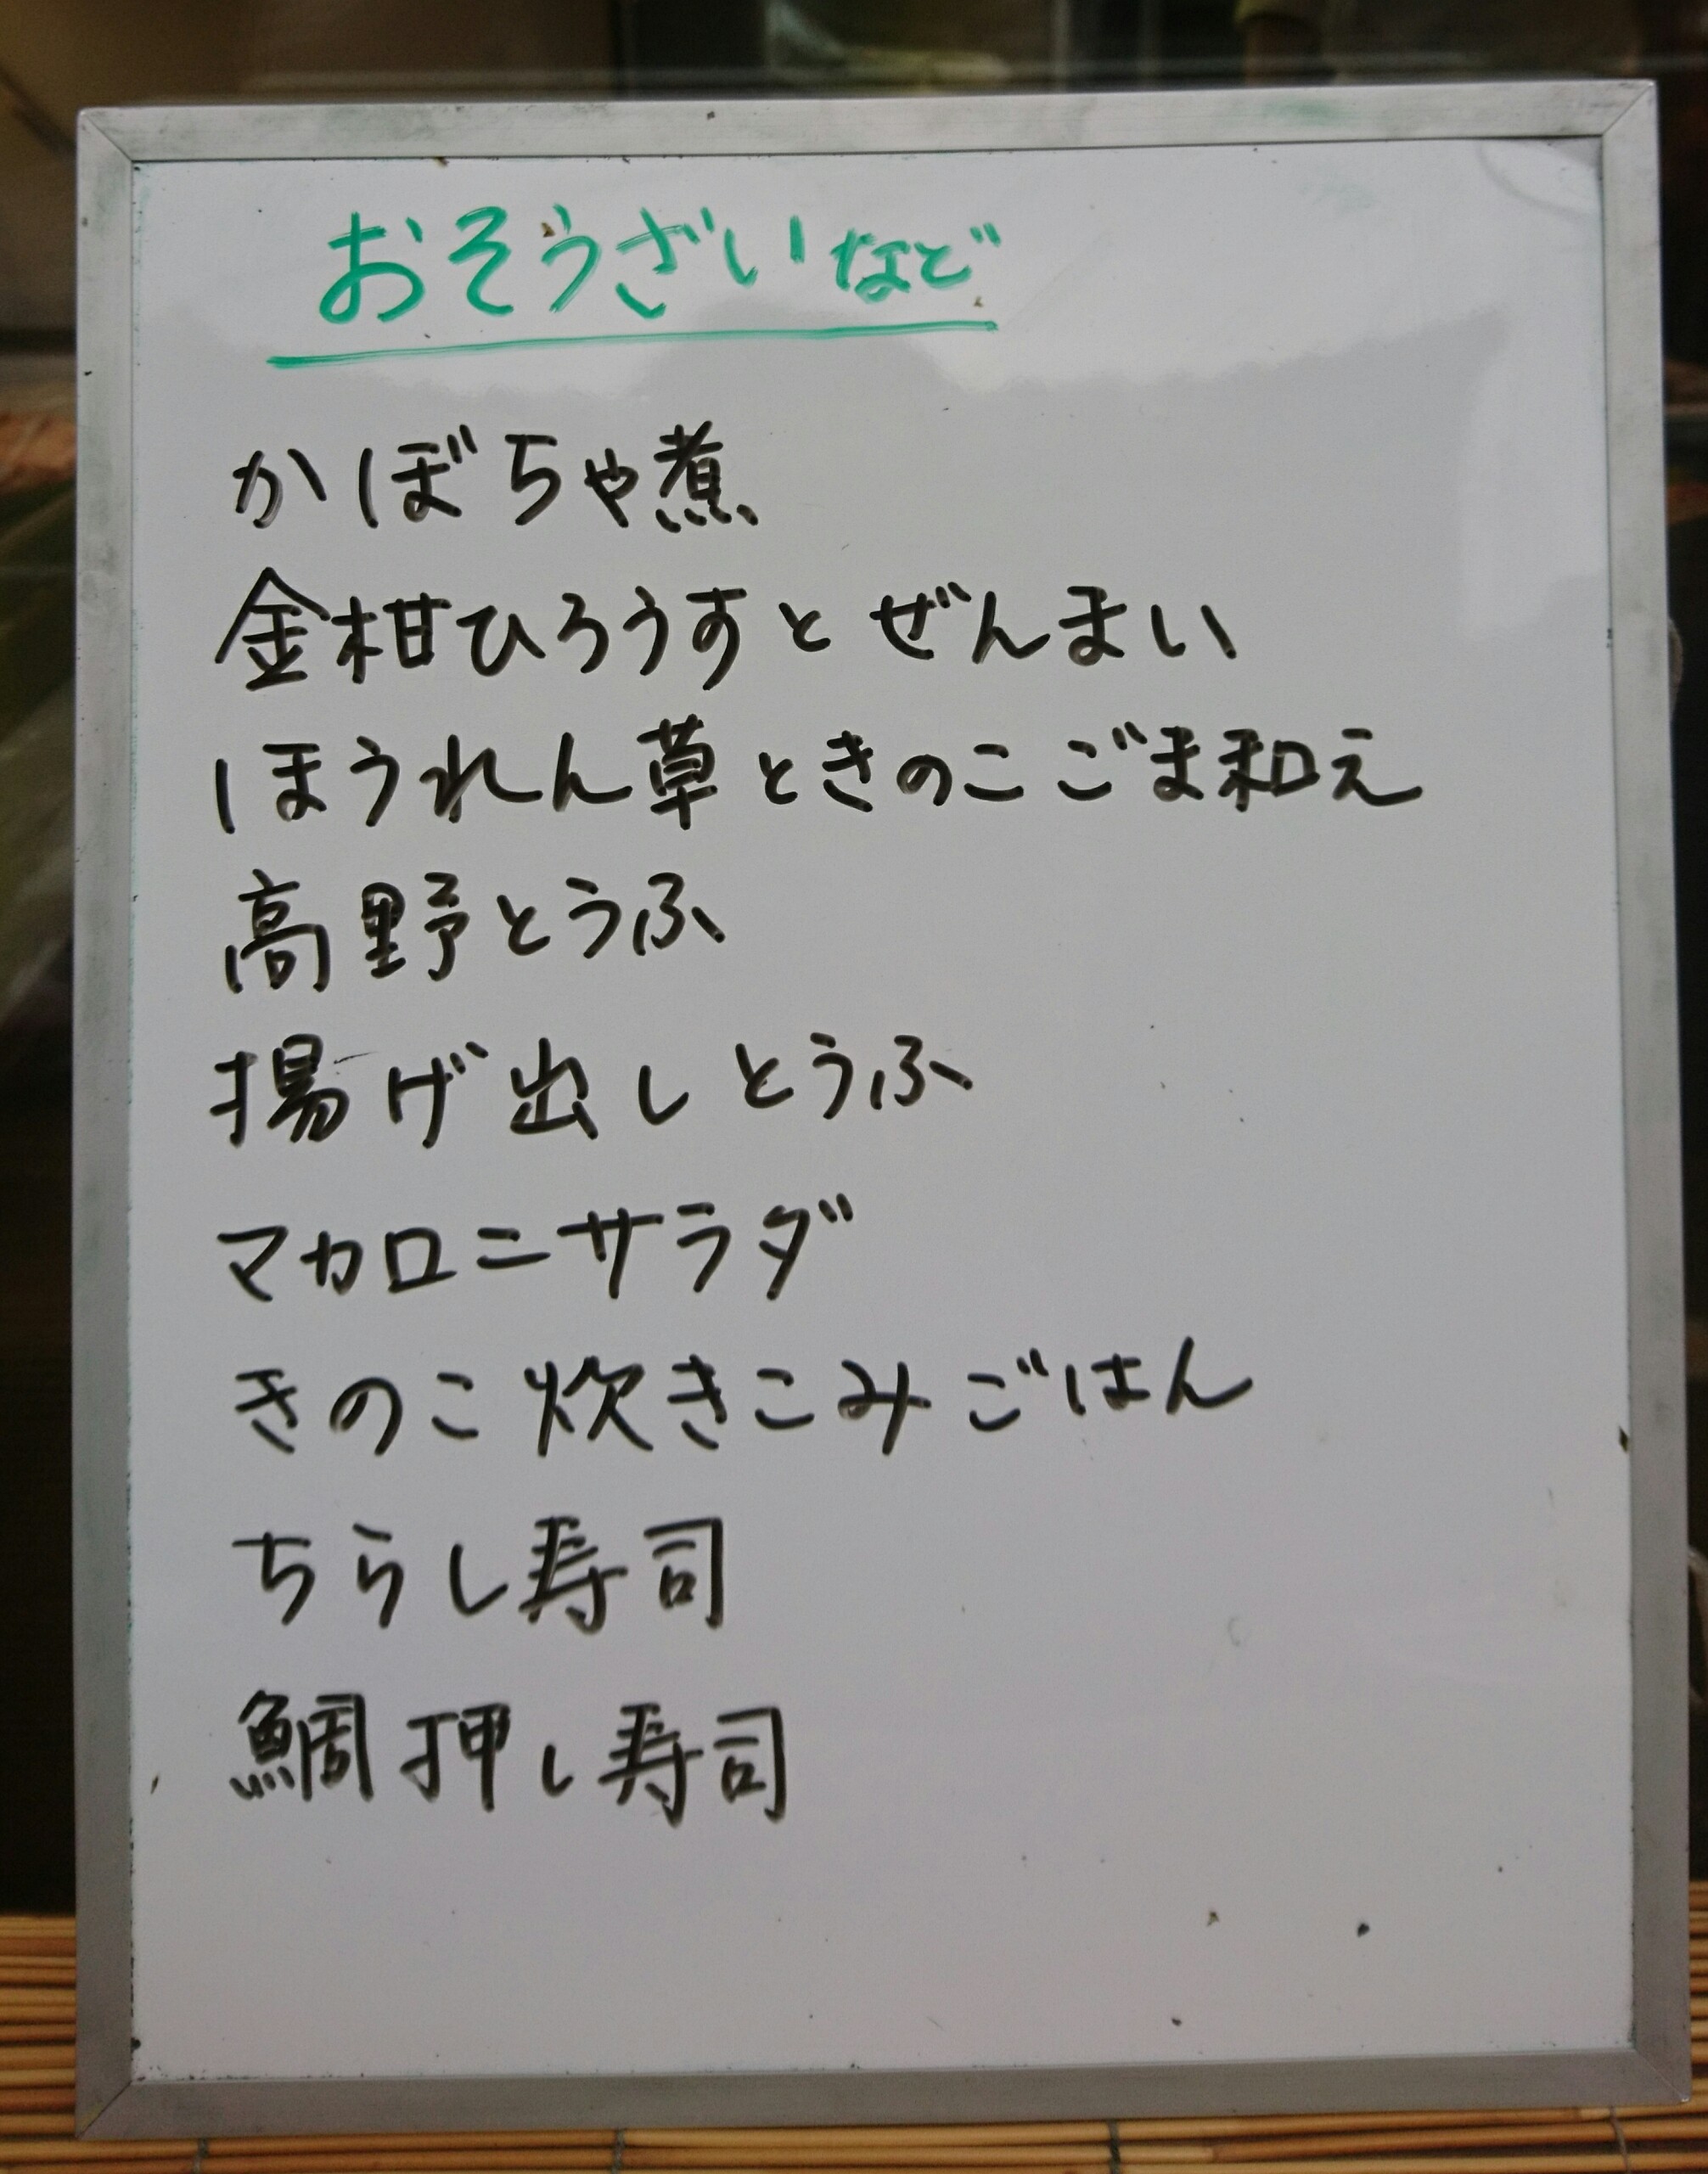 おそうざいなど
かぼちゃ煮
金柑ひろうすとぜんまい
ほうれん草ときのこごま和え
高野とうふ
揚げ出しとうふ
マカロニサラダ
きのこ炊きこみごはん
ちらし寿司
鯛押し寿司